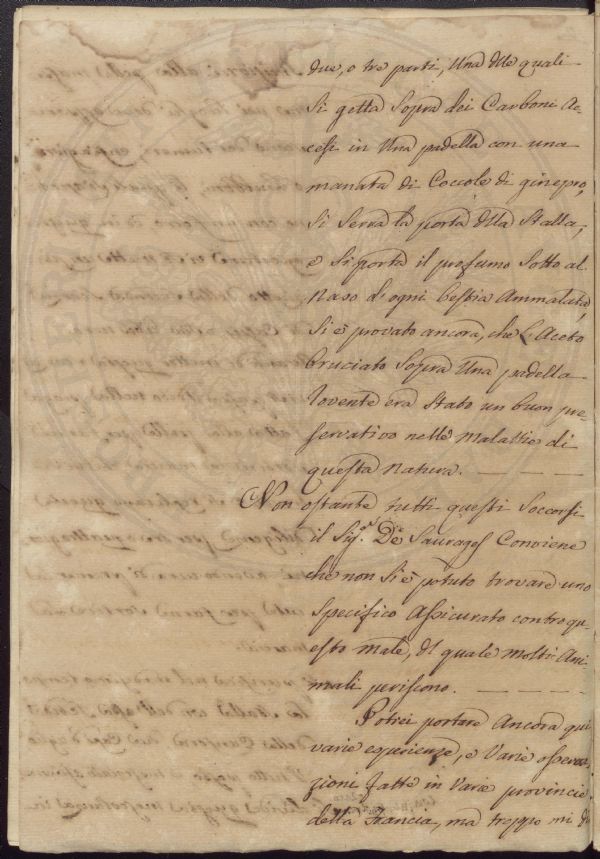 due, o tre parti, Una dlle quali
Si getta Sopra dei Carboni Ac-
cesi in Una padella con una
manata di Coccole di ginepro,
Si Serra la porta dlla Stalla,
e Si porta il profumo Sotto al
Naso d'ogni bestia Ammalata,
Si è provato ancora, che L'Aceto
bruciato Sopra Una padella
rovente era Stato un buon pre-
servativo nelle Malattie di
questa natura.
Non ostante tutti questi Soccorsi
il Sig.r De Sauvages Conviene
che non Si è potuto trovare uno
Specifico Assicurato contro que-
sto male, dl quale molti Ani-
mali periscono.
Potrei portare Ancora qui
varie esperienze, e Varie osserva-
zioni fatte in Varie provincie
della Francia, ma troppo mi di